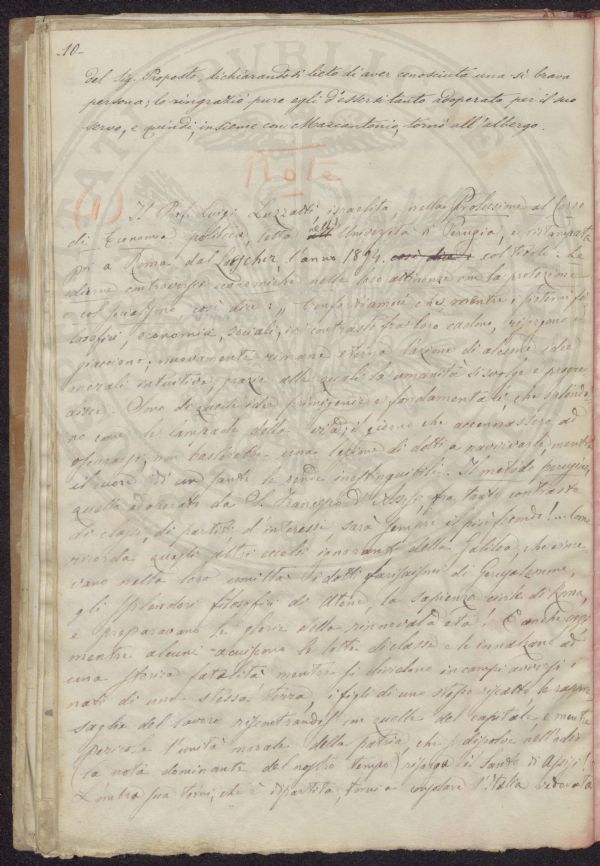 -10-
del Sig. Proposto, dichiarandosi lieto di aver conosciuta una sì brava
persona; lo ringraziò pure egli d'essersi tanto adoperato per il suo
servo, e quindi, insieme con Marcantonio, tornò all'albergo.
Note
(1) Il Prof. Luigi Luzzatti israelita, nella Prolusione al Corso
di Economia politica, letta nell' Università di Perugia, e ristampata
poi a Roma dal Loescher, l'anno 1894, col titolo: Le
odierne controversie economiche nelle loro attinenze con la protezione
e col socialismo, così dice: " e mentre i sistemi fi
losofici, economici, sociali, in contrasto fra loro cadono, risorgono e
giacciono; nuovamente rimane eterna l'azione di alcune idee
morali intuitive, grazie alle quali la umanità si svolge e progre
disce. Sono di quelle idee primigenie e fondamentali, che splendo
no come le lampade della vita; il giorno che accennassero ad
oscurarsi, non basterebbe una legione di dotti a ravvivarle, mentre
il cuore di un santo le rende inestinguibili. Il metodo
quello adoperato da S. Francesco d'Assisi, fra tanto contrasto
di classi, di partiti, d'interessi, sarà sempre il più fecondo!... Come
ricorda quegli altri eccelsi ignoranti della Galilea, che vince
vano nella loro umiltà i dotti farisaismi di Gerusalemme,
gli splendori filosofici di Atene, la sapienza civile di Roma,
e preparavano le glorie della rinnovata età! E anche oggi
mentre alcuni acuiscono le lotte di classe e le innalzano ad
una storica fatalità, mentre si dividono in campi avversi i
nati di una stessa terra, i figli di uno stesso riscatto, le rappre
saglie del lavoro ripercotendosi in quelle del capitale, e mentre
pericola l'unità morale della patria, che si dissolve nell'odio
la nota dominante del nostro tempo, risorga il Santo di Assisi!
L'ombra sua torni, ch'è dipartita, torni a consolare l'Italia vedovata